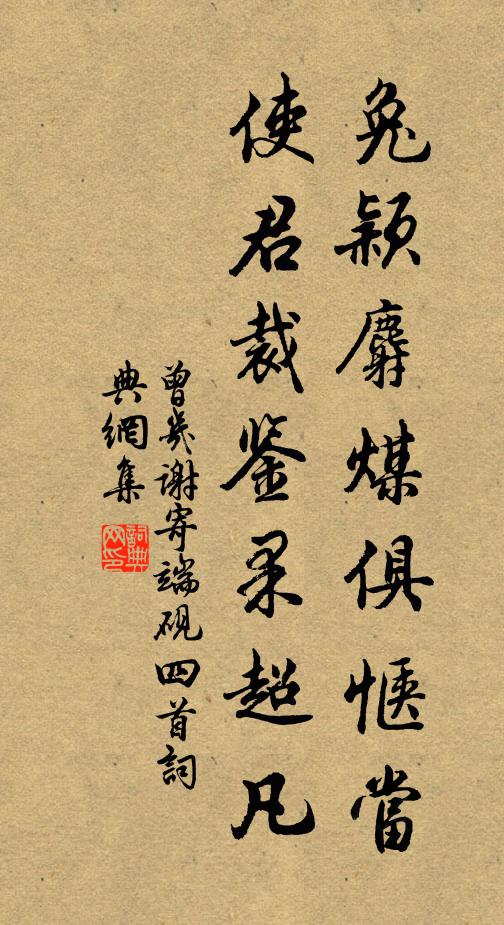 兔颖麝煤俱惬當
使君裁鉴果超凡
曾幾谢寄端砚四首詞
典網集
詞典网印